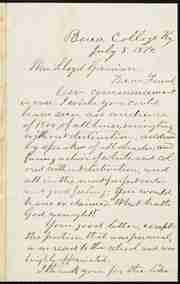 Berea College Ky
July 5, 18
Wm Lloyd Garrison
Dear Friend
Our commencement
is over. I wish you could
have seen an audience
of 1500 of all
without distinction,
by speakers of all shades and
of white and col
ored without distinction, and
all in the most perfect
and good feeling. You would
have exclaimed "What hath
God wrought!
Your good letter, except
the portion that was personal,
was read to the school and was
highly appreciated.
I thank you for the